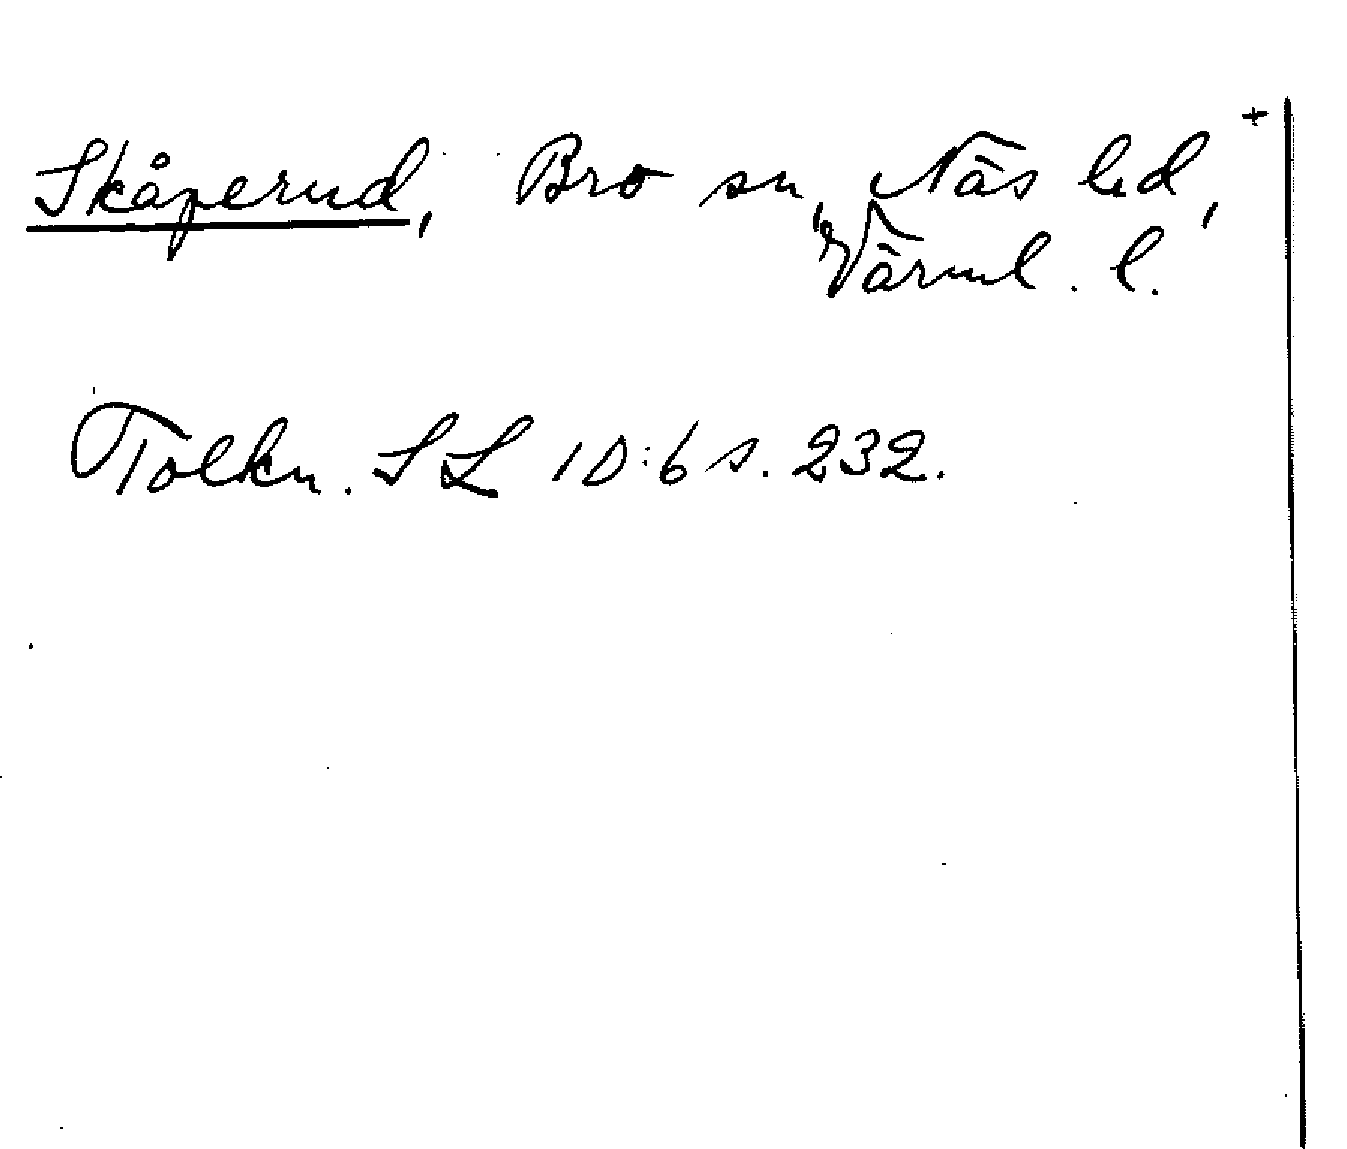 Skåperud, Bro sn, Näs hd, +
Värml. l.
Tolkn. SL 10:6 s. 232.